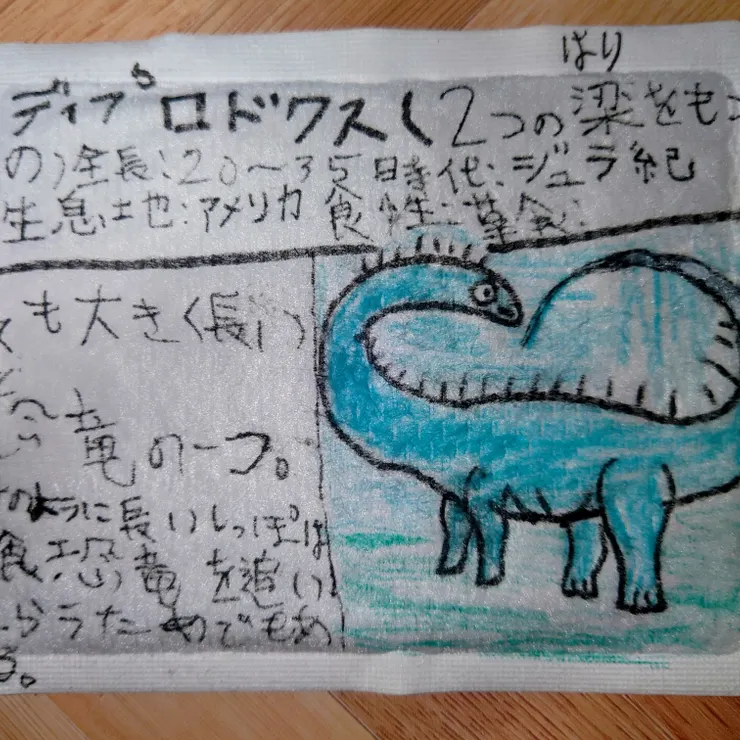 はり
ディプロドクス(2つの梁をもつ
の)全長:20〜35 時代:ジュラ紀
生息土也:アメリカ 食性:草食:
も大きく長い
竜の一つ。
のように長いしっぽは
食恐竜を追い
はらうためでもあ
る。